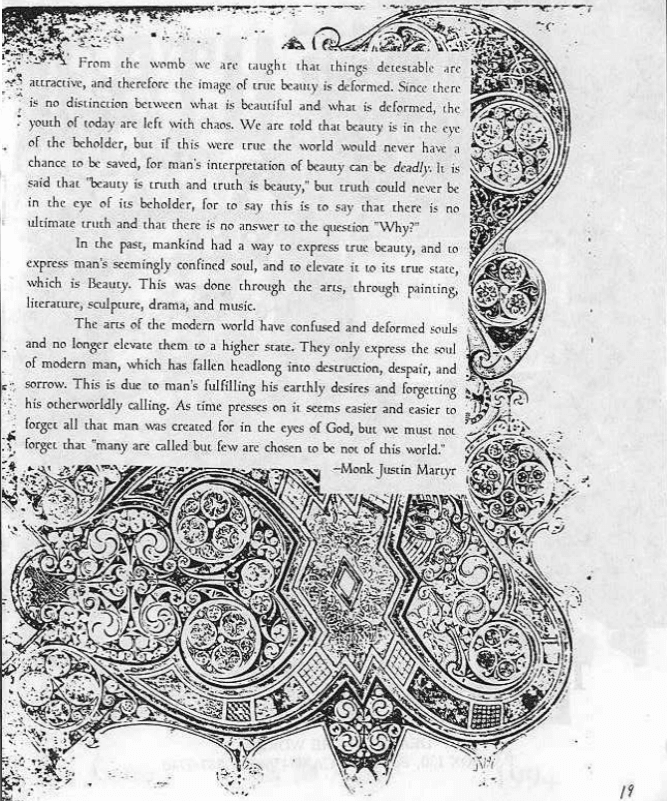 From the womb we are taught that things detestable are
attractive, and therefore the image of true beauty is deformed. Since there
is no distinction between what is beautiful and what is deformed, the
youth of today are left with chaos. We are told that beauty is in the eye
of the beholder, but if this were true the world would never have a
chance to be saved, for man's interpretation of beauty can be deadly. It is
said that "beauty is truth and truth is beauty," but truth could never be
in the eye of its beholder, for to say this is to say that there is no
ultimate truth and that there is no answer to the question "Why?"
In the past, mankind had a way to express true beauty, and to
express man's seemingly confined soul, and to elevate it to its true state,
which is Beauty. This was done through the arts, through painting,
literature, sculpture, drama, and music.
The arts of the modern world have confused and deformed souls
and no longer elevate them to a higher state. They only express the soul
of modern man, which has fallen headlong into destruction, despair, and
sorrow. This is due to man's fulfilling his earthly desires and forgetting
his otherworldly calling. As time presses on it seems easier and easier to
forget all that man was created for in the eyes of God, but we must not
forget that "many are called but few are chosen to be not of this world."
–Monk Justin Martyr
19